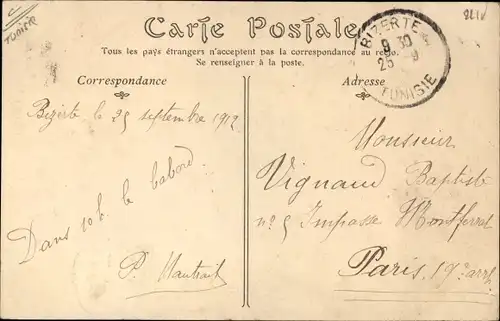 Tunisie
Carte Postale
Tous les pays étrangers n'acceptent pas la correspondance au recto.
Se renseigner à la poste.
Correspondance
Adresse
BIZERTE
9 30
25 9
TUNISIE
Bizerte le 25 septembre 1912
Dans 10 b. le babord.
P. Hautrait
Monsieur
Vignaud Baptiste
n° 5 Impasse Montferrat
Paris, 19e arrt